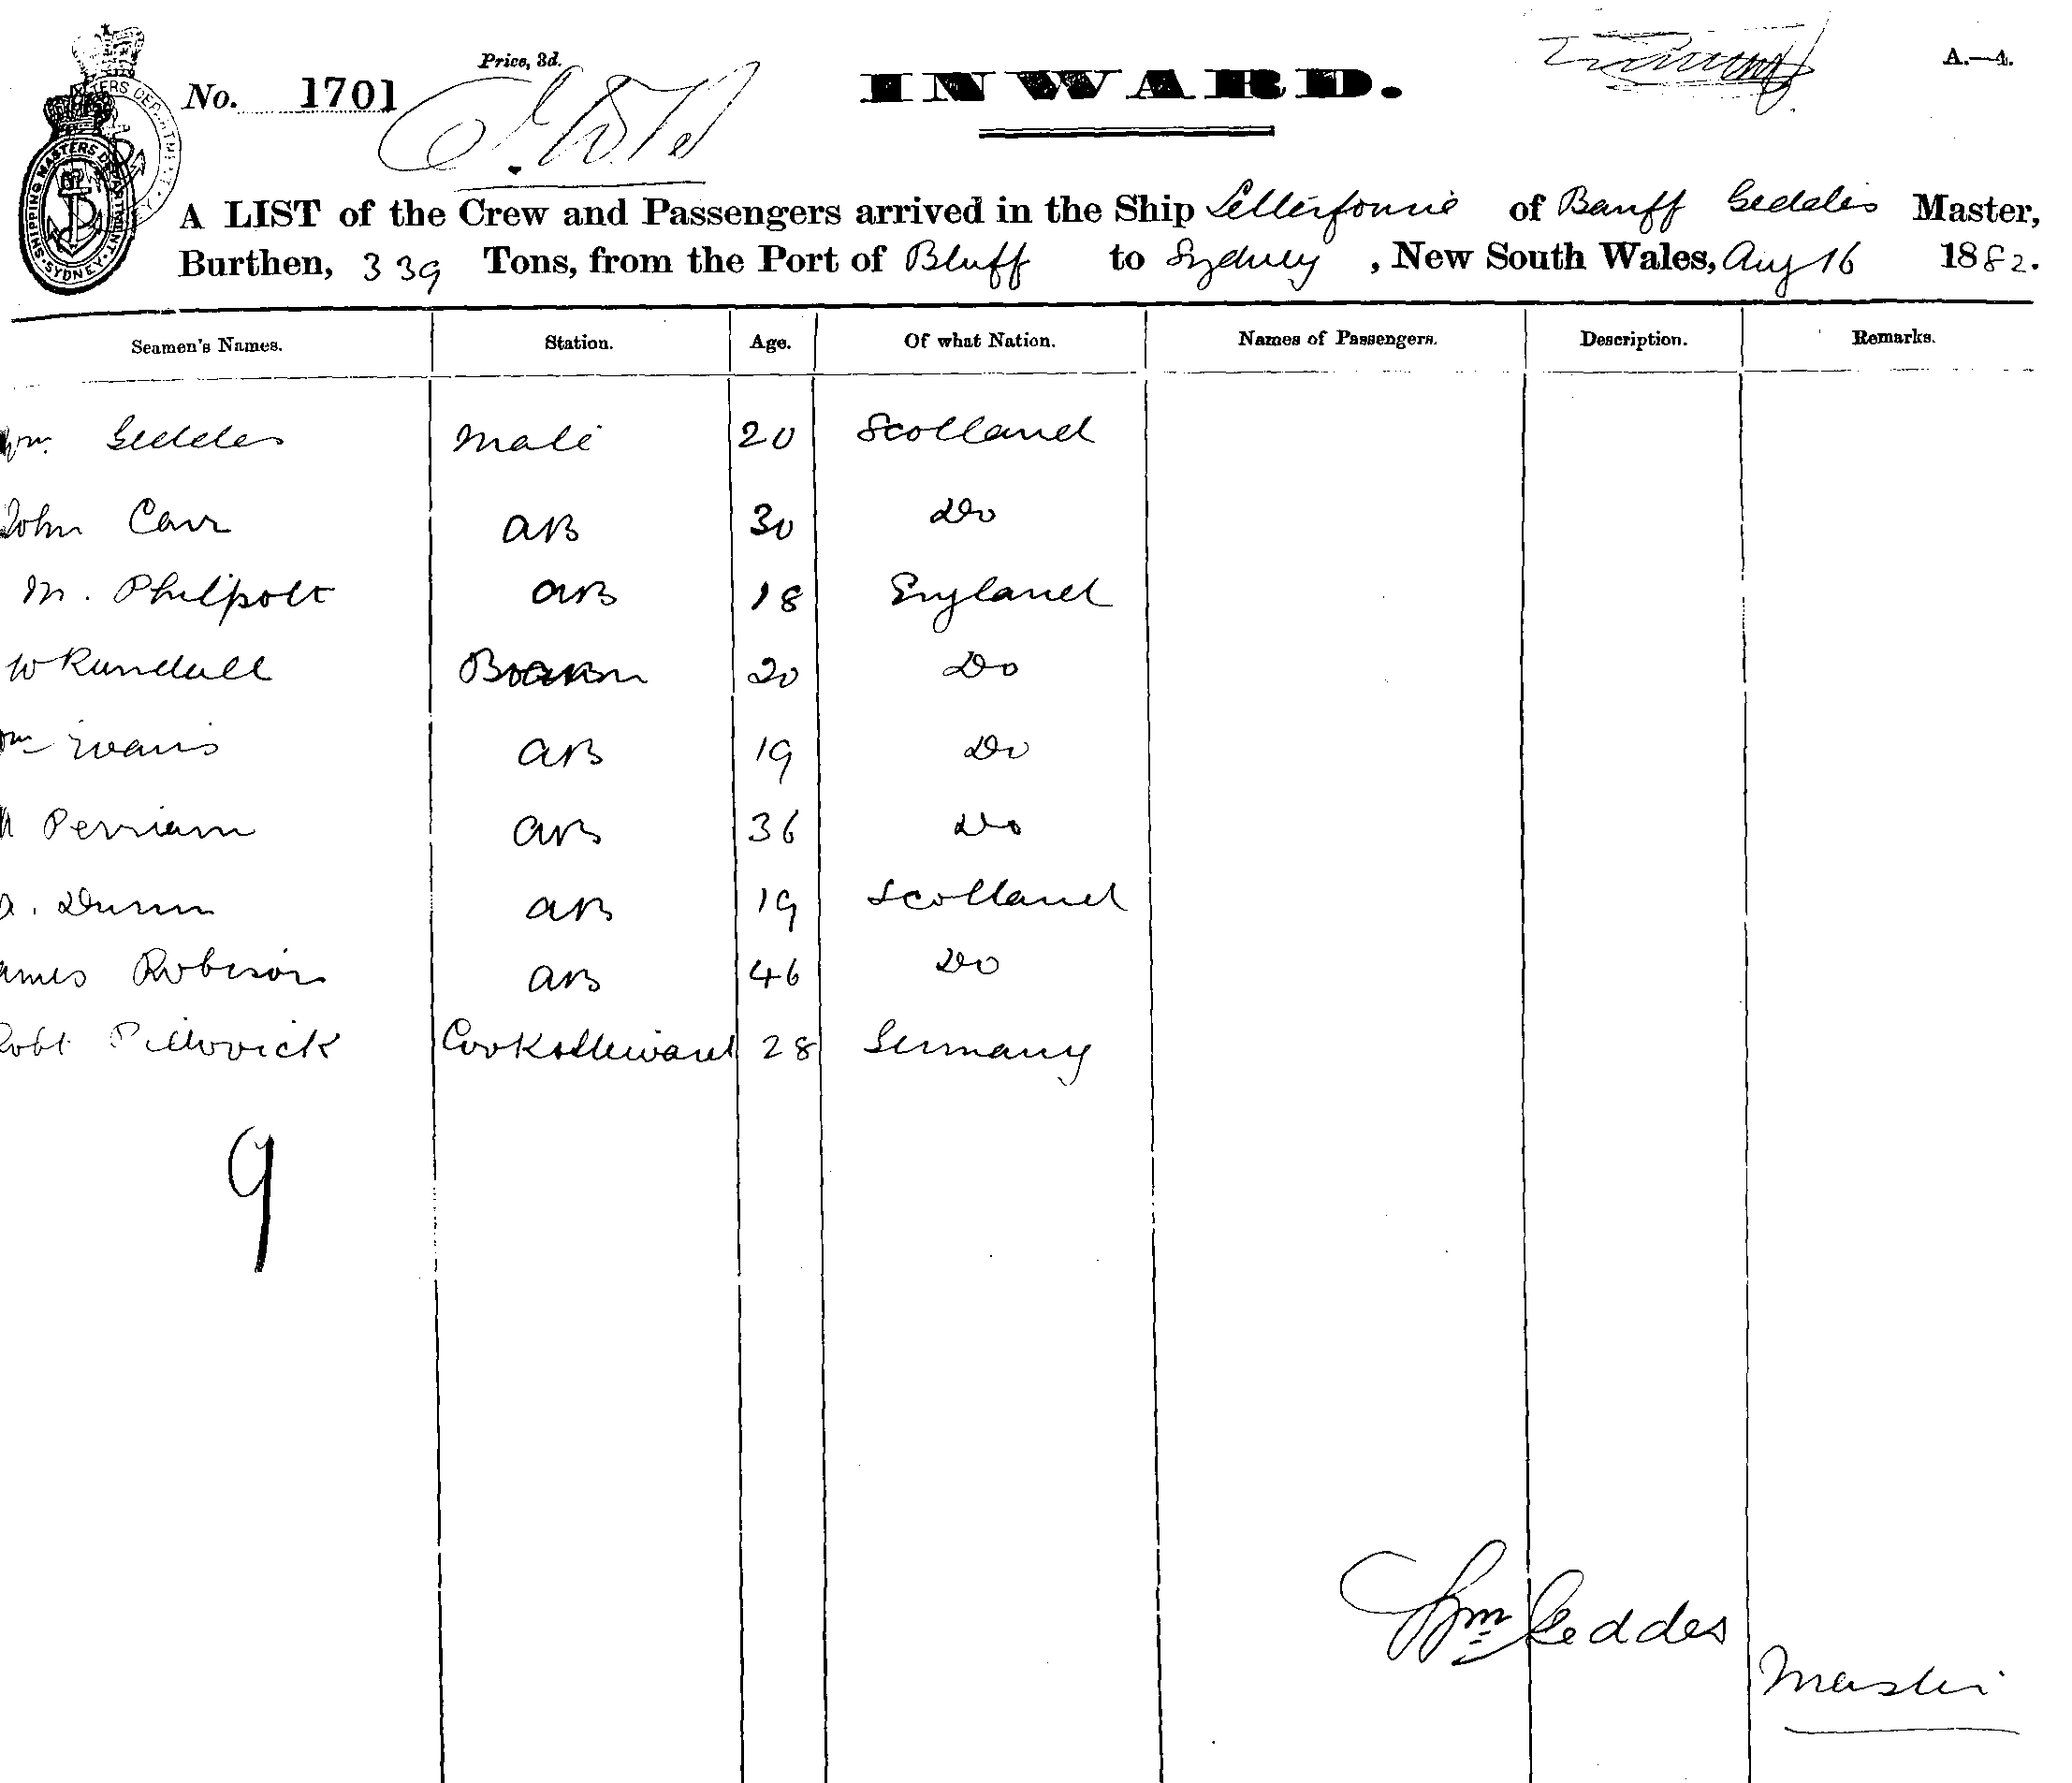 Price, 3d.
A.—4.
No. 1701
INWARD.
SHIPPING MASTERS DEPARTMENT SYDNEY
A LIST of the Crew and Passengers arrived in the Ship Letterfourie of Banff Geddes Master,
Burthen, 339 Tons, from the Port of Bluff to Sydney, New South Wales, Aug 16 1882.
Seamen's Names. Station. Age. Of what Nation. Names of Passengers. Description. Remarks.
Wm Geddes Mate 20 Scotland
John Carr AB 30 Do
M. Philpott AB 18 England
W Rundall 20 Do
Wm Evans AB 19 Do
Perriam AB 36 Do
Dunn AB 19 Scotland
ames Robison AB 46 Do
Robt Cook & Steward 28 Germany
9
Wm Geddes
Master